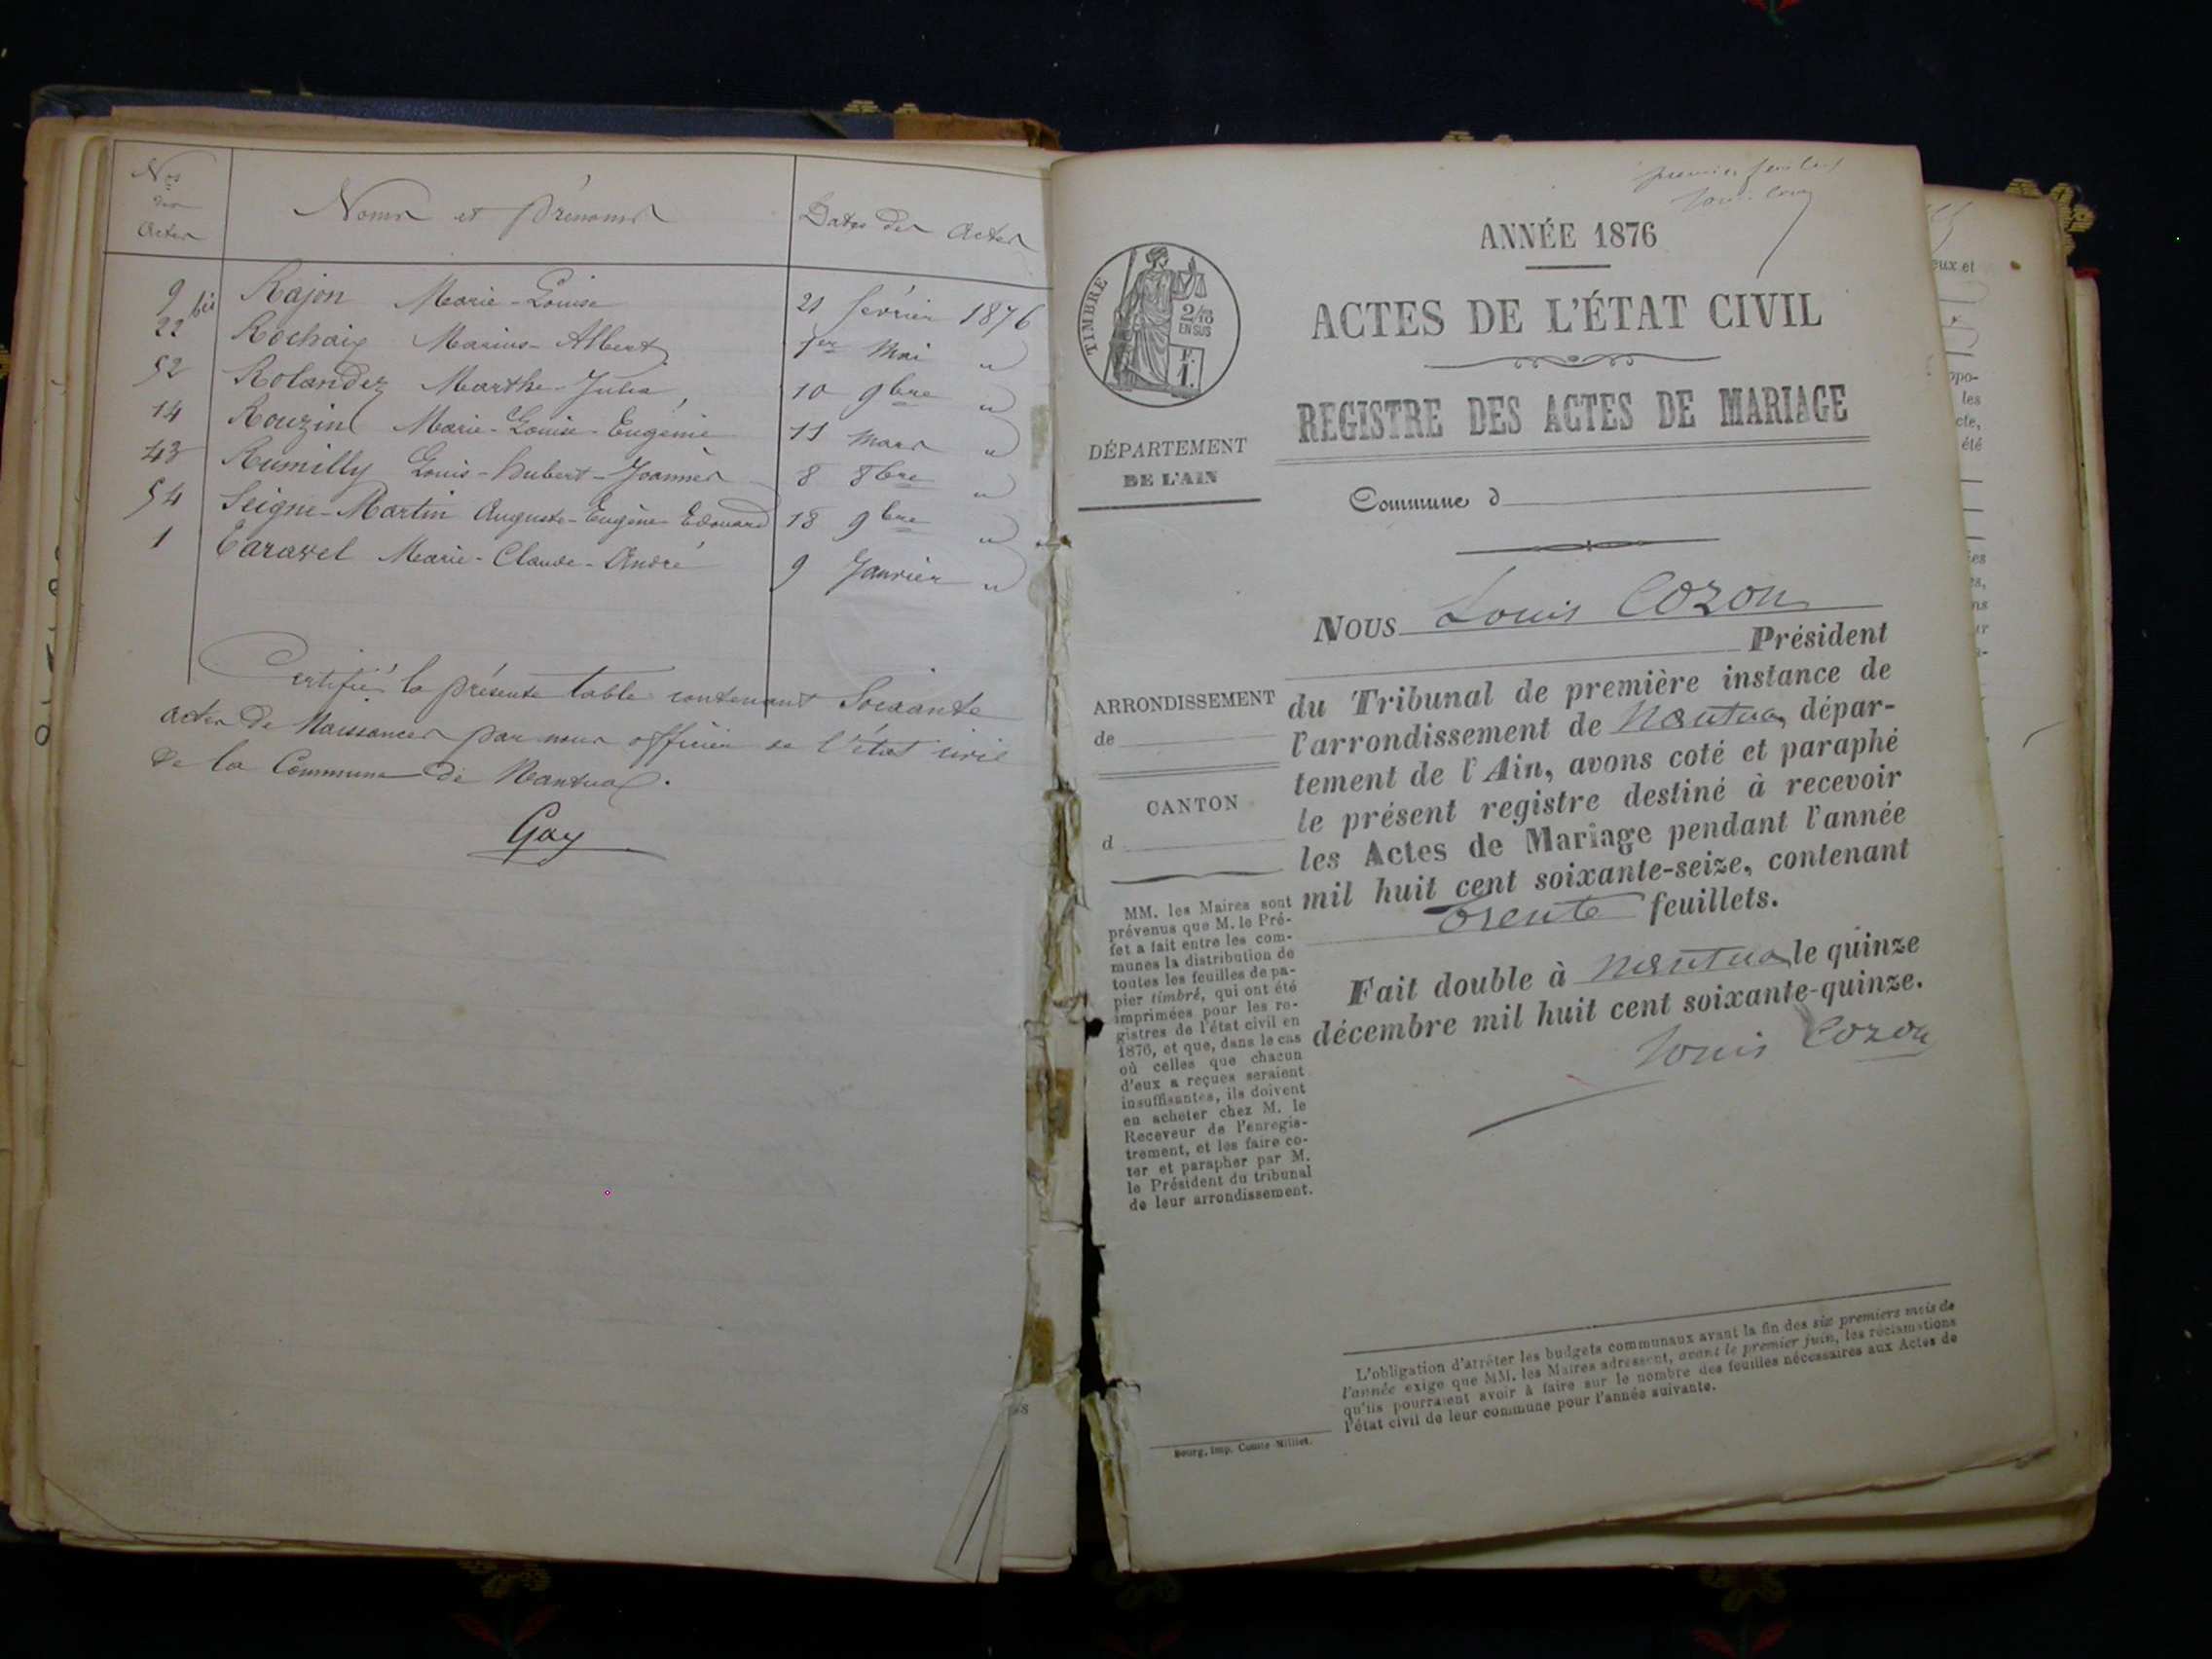 Nos
des
Actes
Noms et Prénoms
Dates des Actes
9 bis Rajon Marie-Louise 21 février 1876
22 Rochaix Marius-Albert 1er Mai "
52 Rolandez Marthe-Julia 10 9bre "
14 Rouzin Marie-Louise-Eugénie 11 Mars "
43 Rumilly Louis-Hubert-Joannès 8 8bre "
54 Seigne-Martin Auguste-Eugène-Edouard 18 9bre "
1 Taravel Marie-Claude-André 9 Janvier "
Certifié la présente table contenant Soixante
actes de Naissances par nous officier de l'état civil
de la Commune de Nantua.
Gay
premier feuillet
Louis Cozon
ANNÉE 1876
ACTES DE L'ÉTAT CIVIL
REGISTRE DES ACTES DE MARIAGE
TIMBRE
2/10
EN SUS
F.
1.
DÉPARTEMENT
DE L'AIN
Commune d
NOUS Louis Cozon
Président
du Tribunal de première instance de
l'arrondissement de Nantua, dépar-
tement de l'Ain, avons coté et paraphé
le présent registre destiné à recevoir
les Actes de Mariage pendant l'année
mil huit cent soixante-seize, contenant
trente feuillets.
Fait double à Nantua le quinze
décembre mil huit cent soixante-quinze.
Louis Cozon
ARRONDISSEMENT
de
CANTON
d
MM. les Maires sont
prévenus que M. le Pré-
fet a fait entre les com-
munes la distribution de
toutes les feuilles de pa-
pier timbré, qui ont été
imprimées pour les re-
gistres de l'état civil en
1876, et que, dans le cas
où celles que chacun
d'eux a reçues seraient
insuffisantes, ils doivent
en acheter chez M. le
Receveur de l'enregis-
trement, et les faire co-
ter et parapher par M.
le Président du tribunal
de leur arrondissement.
L'obligation d'arrêter les budgets communaux avant la fin des six premiers mois de
l'année exige que MM. les Maires adressent, avant le premier juin, les réclamations
qu'ils pourraient avoir à faire sur le nombre des feuilles nécessaires aux Actes de
l'état civil de leur commune pour l'année suivante.
Bourg, Imp. Comte-Milliet.
eux et
ppo-
les
cte,
été